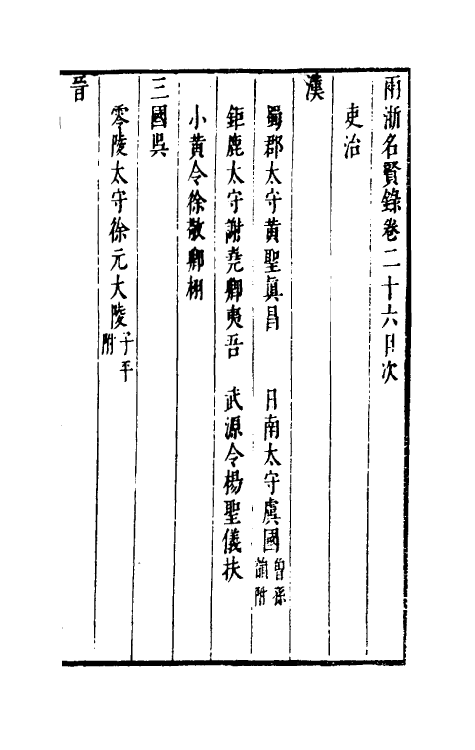 兩浙名賢錄卷二十六目次
吏治
漢
蜀郡太守黃聖眞昌　日南太守虞國曾孫韻附
鉅鹿太守謝堯卿夷吾　武源令楊聖儀扶
小黃令徐敬卿栩
三國吳
零陵太守徐元大陵子平附
晉